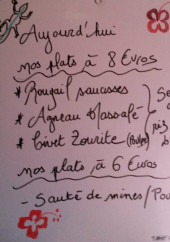 Aujourd'hui
nos plats à 8 Euros
* Rougail saucisses
* Agneau Massalé
* Civet Zourite
nos plats à 6 Euros
- Sauté de mines / Pou